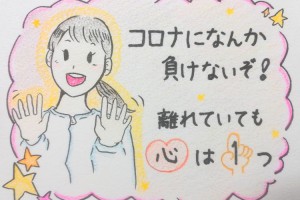 コロナになんか
負けないぞ!
離れていても
心は1つ